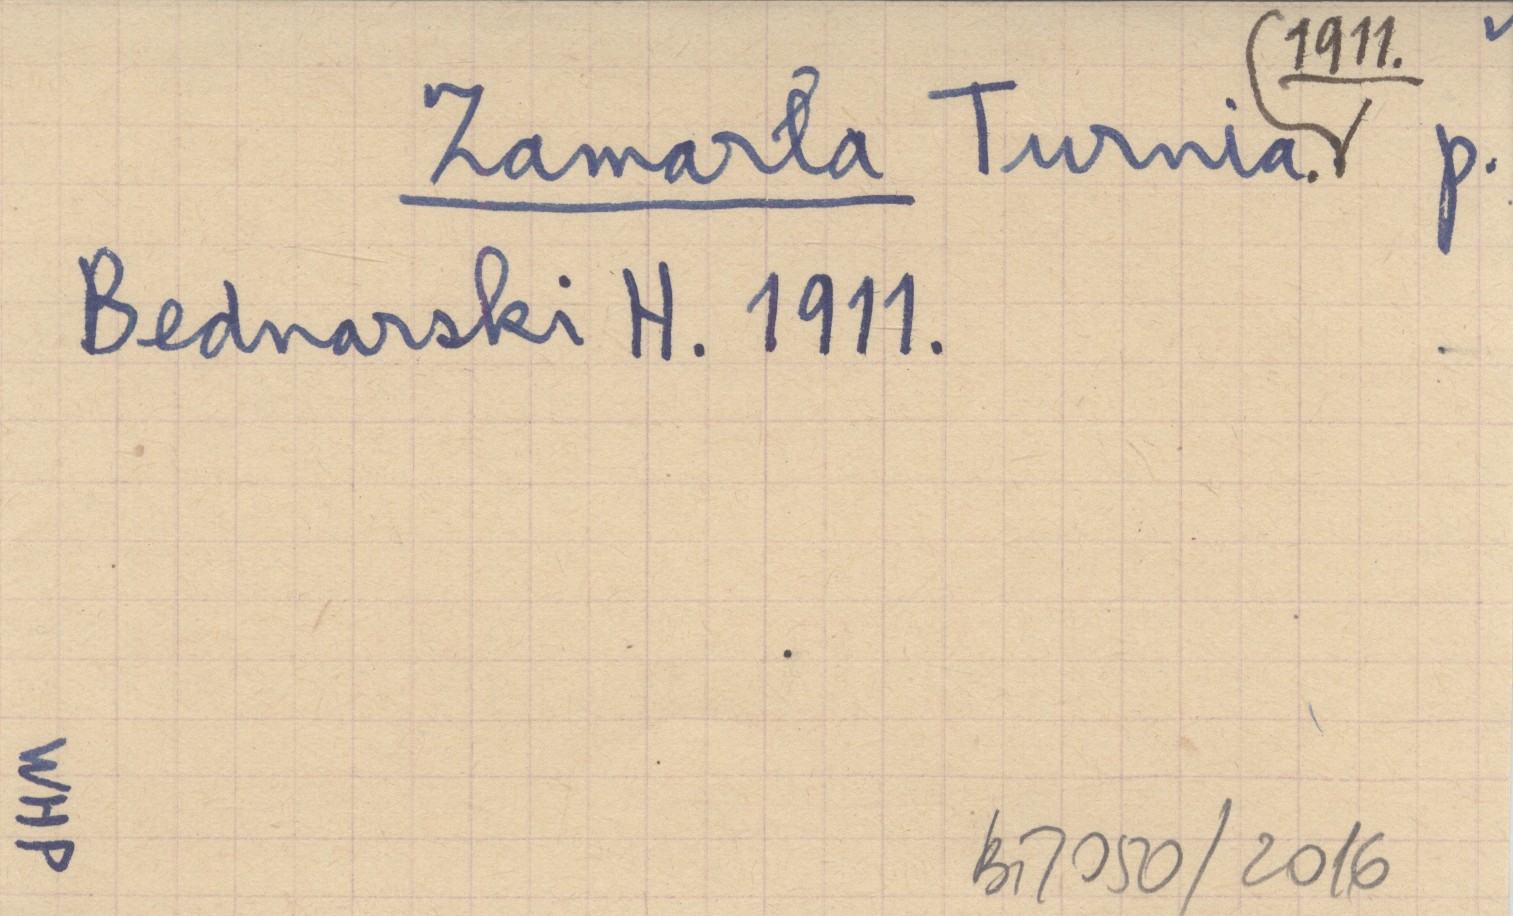 1911.
Zamarła Turnia. p.
Bednarski H. 1911.
WHP
Bi7050/2016